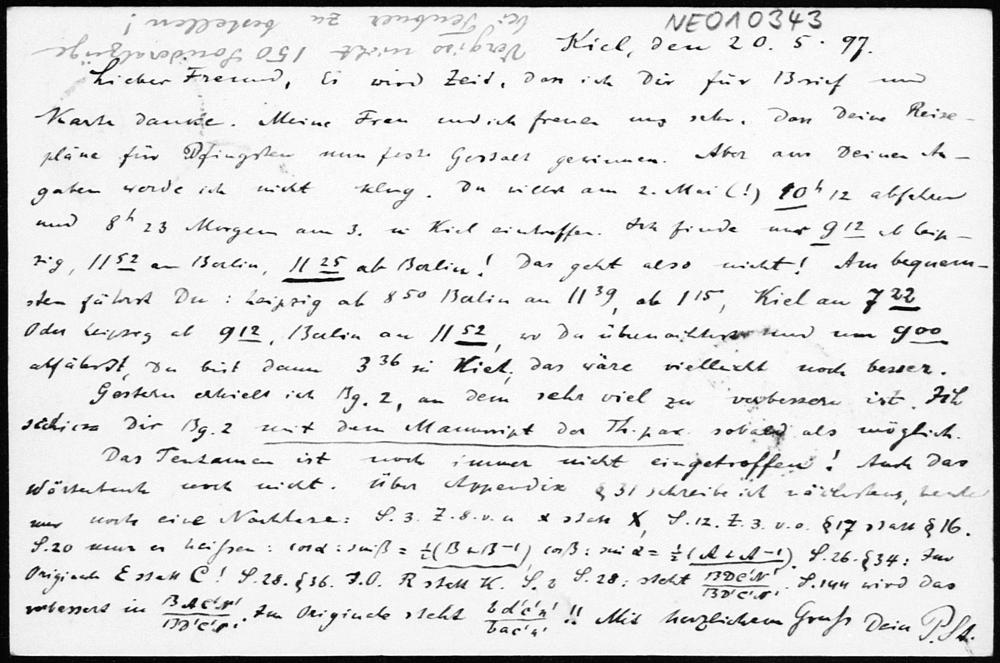 NEO10343
Vergiss nicht 150 Sonderabzüge
bei Teubner zu bestellen!
Kiel, den 20. 5. 97.
Lieber Freund, Es wird Zeit, dass ich Dir für Brief und
Karte danke. Meine Frau und ich freuen uns sehr, dass Deine Reise-
pläne für Pfingsten nun feste Gestalt gewinnen. Aber aus Deinen An-
gaben werde ich nicht klug. Du willst am 2. Mai (!) 10h 12 abfahren
und 8h 23 Morgen am 3. in Kiel eintreffen. Ich finde nur 9 12 ab Leip-
zig, 11 52 an Berlin, 11 25 ab Berlin! Das geht also nicht! Am bequem-
sten fährst Du: Leipzig ab 8 50 Berlin an 11 39, ab 1 15, Kiel an 7 22
Oder Leipzig ab 9 12, Berlin an 11 52, wo Du übernachtest und um 9 00
abfährst, Du bist dann 3 36 in Kiel, das wäre vielleicht noch besser.
Gestern erhielt ich Bg. 2, an dem sehr viel zu verbessern ist. Ich
schicke Dir Bg. 2 mit dem Manuscript der Th. par. sobald als möglich.
Das Tentamen ist noch immer nicht eingetroffen! Auch das
Wörterbuch noch nicht. Über Appendix § 31 schreibe ich nächstens, heute
nur noch eine Nachlese: S. 3. Z. 8. v. u. x statt X, S. 12. Z. 3. v. o. § 17 statt § 16.
S. 20 muss es heissen: cos α : sin β = ½(B + B⁻¹), cos β : sin α = ½(A + A⁻¹). S. 26. § 34: Im
Originale E statt C! S. 28. § 36. R statt K. S. 28: steht BDC'N' / BD'C'N'. S. 144 wird das
verbessert in BAC'N' / BD'C'N'. Im Originale steht bd'c'n' / bac'n' !! Mit herzlichem Gruss Dein P. St.